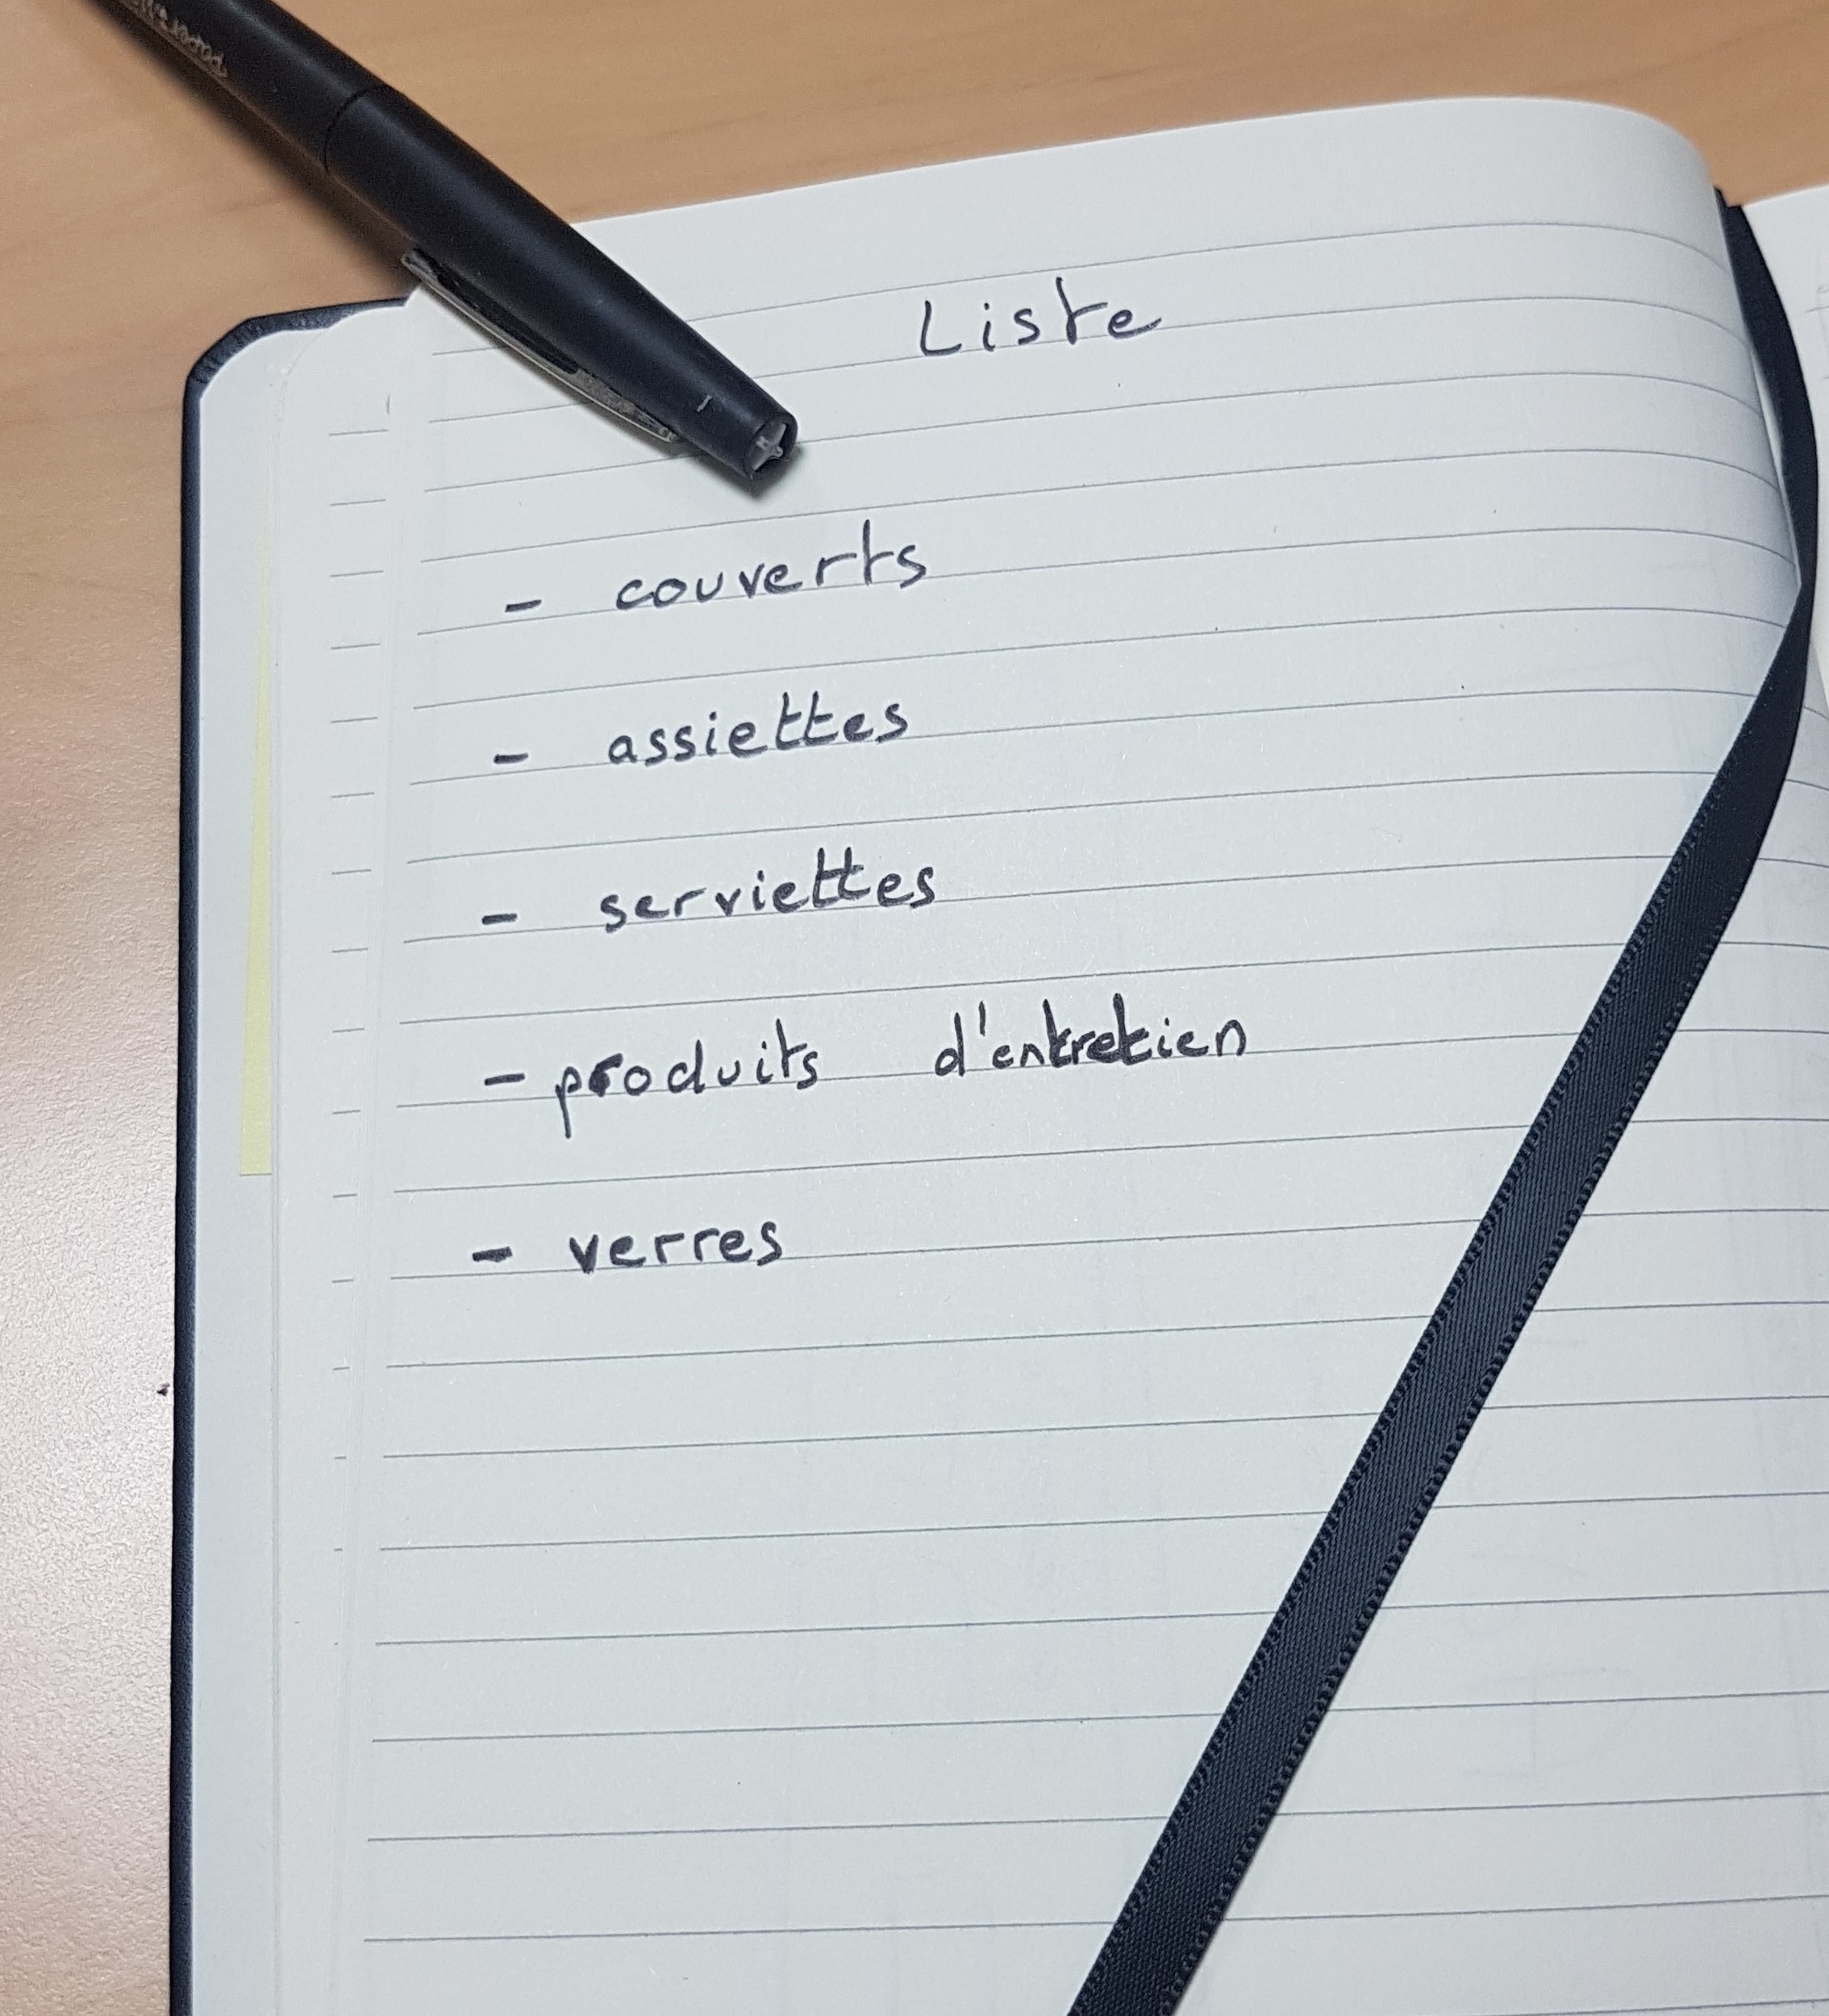 Liste
- couverts
- assiettes
- serviettes
- produits d'entretien
- verres